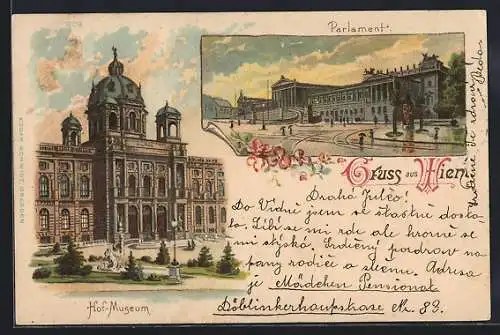 Parlament.
Gruss aus Wien
Hof-Museum
EDGAR SCHMIDT, DRESDEN
Drahá Julčo!
Do Vídně jsem se šťastně dosta-
la. Líbí se mi zde ale hrozně se
mi stýská. Srdečný pozdrav na
pany rodiče a slečnu. Adresa
je Mädchen Pensionat
Döblinkerhauptstrase Nr. 83.